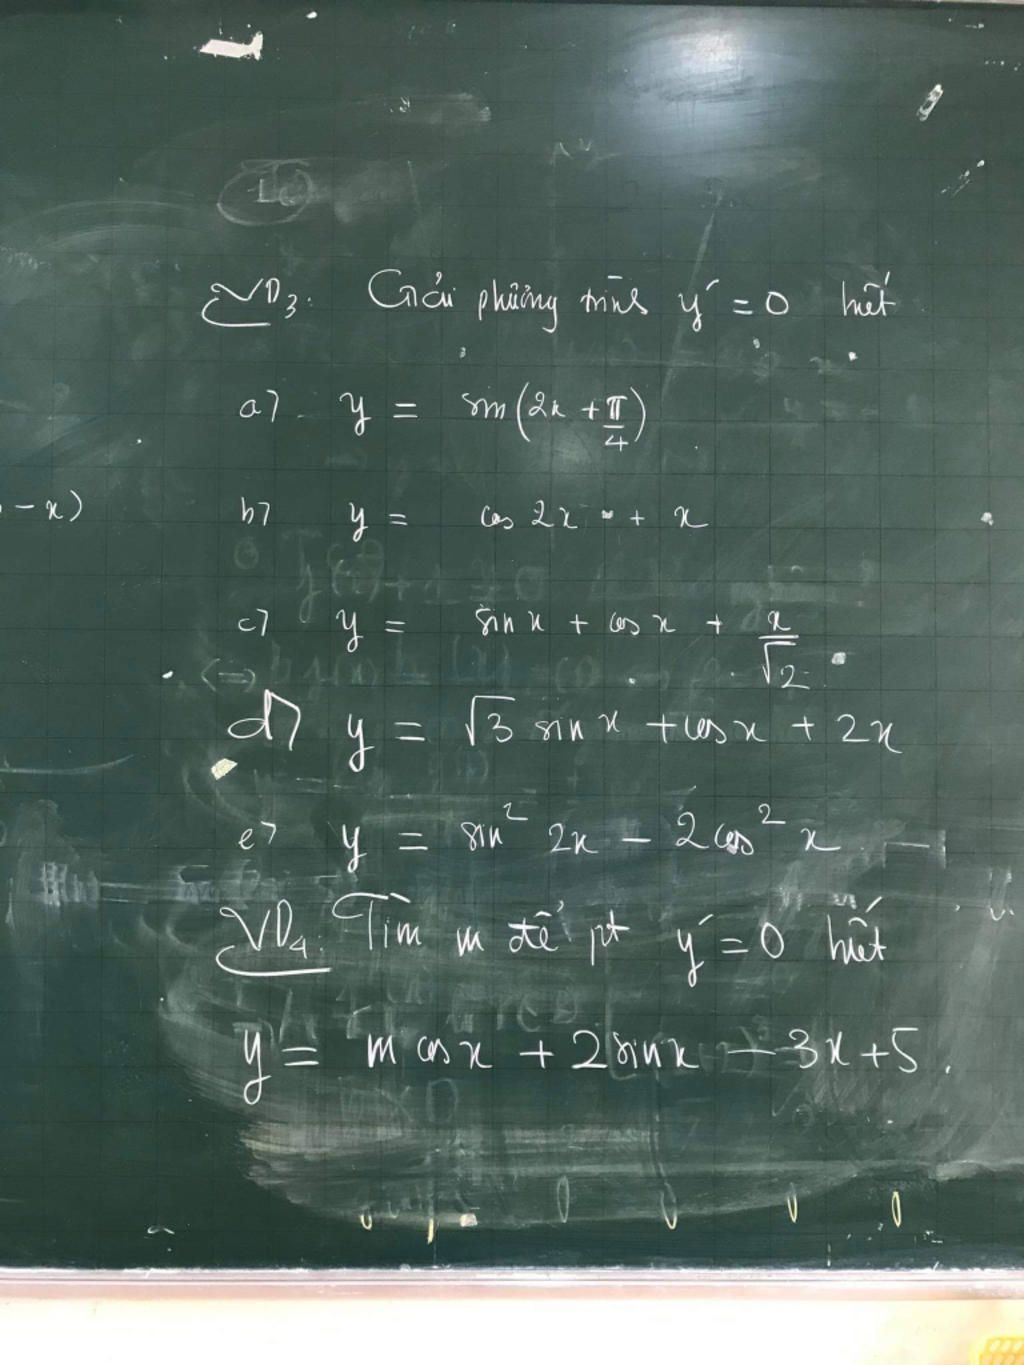 VD3: Giải phương trình y' = 0 biết
a) y = sin(2x + π/4)
- x)
b) y = cos 2x + x
c) y = sin x + cos x + x/√2
d) y = √3 sin x + cos x + 2x
e) y = sin² 2x - 2cos² x
VD4: Tìm m để pt y' = 0 biết
y = m cos x + 2 sin x - 3x + 5.